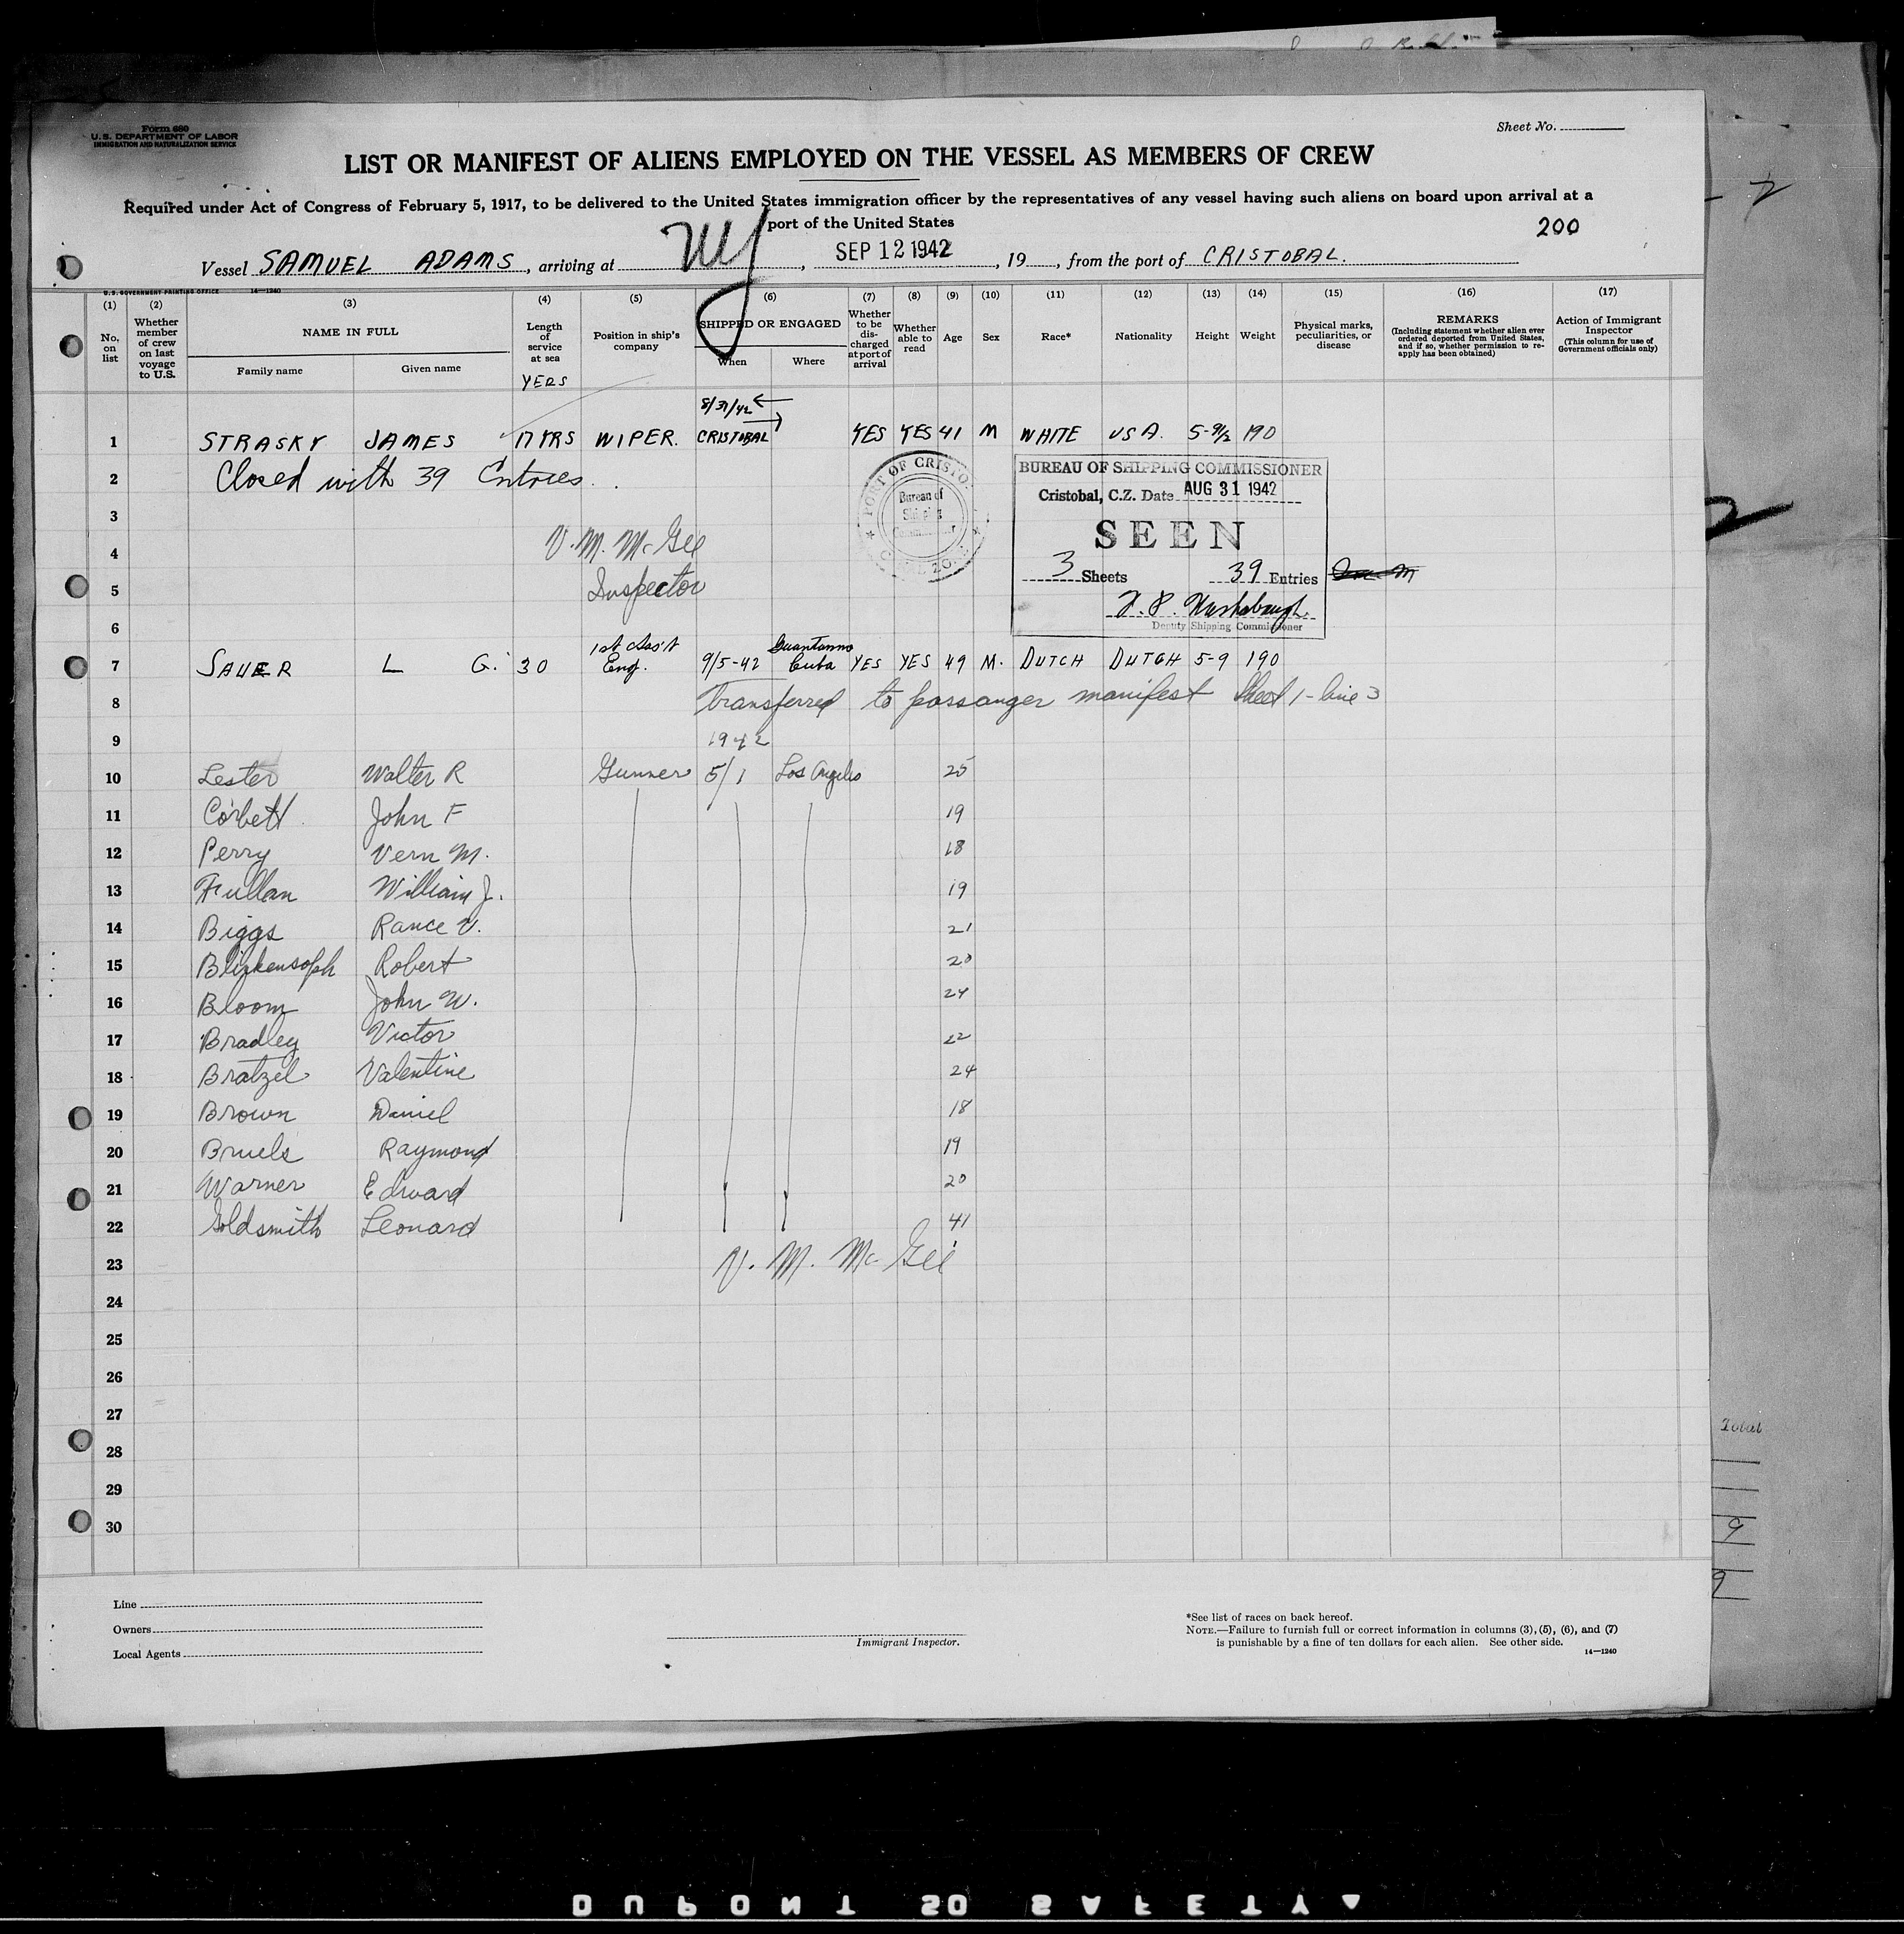 Form 680
U. S. DEPARTMENT OF LABOR
IMMIGRATION AND NATURALIZATION SERVICE
Sheet No.
LIST OR MANIFEST OF ALIENS EMPLOYED ON THE VESSEL AS MEMBERS OF CREW
Required under Act of Congress of February 5, 1917, to be delivered to the United States immigration officer by the representatives of any vessel having such aliens on board upon arrival at a
port of the United States
200
Vessel SAMUEL ADAMS, arriving at NY, SEP 12 1942, 19, from the port of CRISTOBAL.
U. S. GOVERNMENT PRINTING OFFICE 14—1240
(1) (2) (3) (4) (5) (6) (7) (8) (9) (10) (11) (12) (13) (14) (15) (16) (17)
No. on list
Whether member of crew on last voyage to U.S.
NAME IN FULL
Family name
Given name
Length of service at sea
YERS
Position in ship's company
SHIPPED OR ENGAGED
When
Where
Whether to be discharged at port of arrival
Whether able to read
Age
Sex
Race*
Nationality
Height
Weight
Physical marks, peculiarities, or disease
REMARKS
(Including statement whether alien ever ordered deported from United States, and if so, whether permission to reapply has been obtained)
Action of Immigrant Inspector
(This column for use of Government officials only)
8/31/42
1 STRASKY JAMES 17 YRS WIPER. CRISTOBAL YES YES 41 M WHITE USA. 5-9½ 190
2 Closed with 39 Entries.
3
4 V. M. McGee
5 Inspector
6
PORT OF CRISTO
Bureau of Shipping
BUREAU OF SHIPPING COMMISSIONER
Cristobal, C.Z. Date AUG 31 1942
SEEN
3 Sheets 39 Entries
Deputy Shipping Commissioner
7 SAUER L G. 30 1st Ass't Eng. 9/5-42 Guantanmo Cuba YES YES 49 M. DUTCH DUTCH 5-9 190
8 Transferred to passanger manifest Sheet 1 - line 3
9 1942
10 Lester Walter R Gunner 5/1 Los Angeles 25
11 Corbett John F 19
12 Perry Vern M. 18
13 Fullan William J. 19
14 Biggs Rance V. 21
15 Robert 20
16 Bloom John W. 24
17 Bradley Victor 22
18 Bratzel Valentine 24
19 Brown Daniel 18
20 Bruels Raymond 19
21 Warner Edward 20
22 Goldsmith Leonard 41
23 V. M. McGee
24
25
26
27
28
29
30
Total
9
9
Line
Owners
Local Agents
Immigrant Inspector.
*See list of races on back hereof.
NOTE.—Failure to furnish full or correct information in columns (3), (5), (6), and (7)
is punishable by a fine of ten dollars for each alien. See other side.
14—1240
DUPONT 50 SAFETY